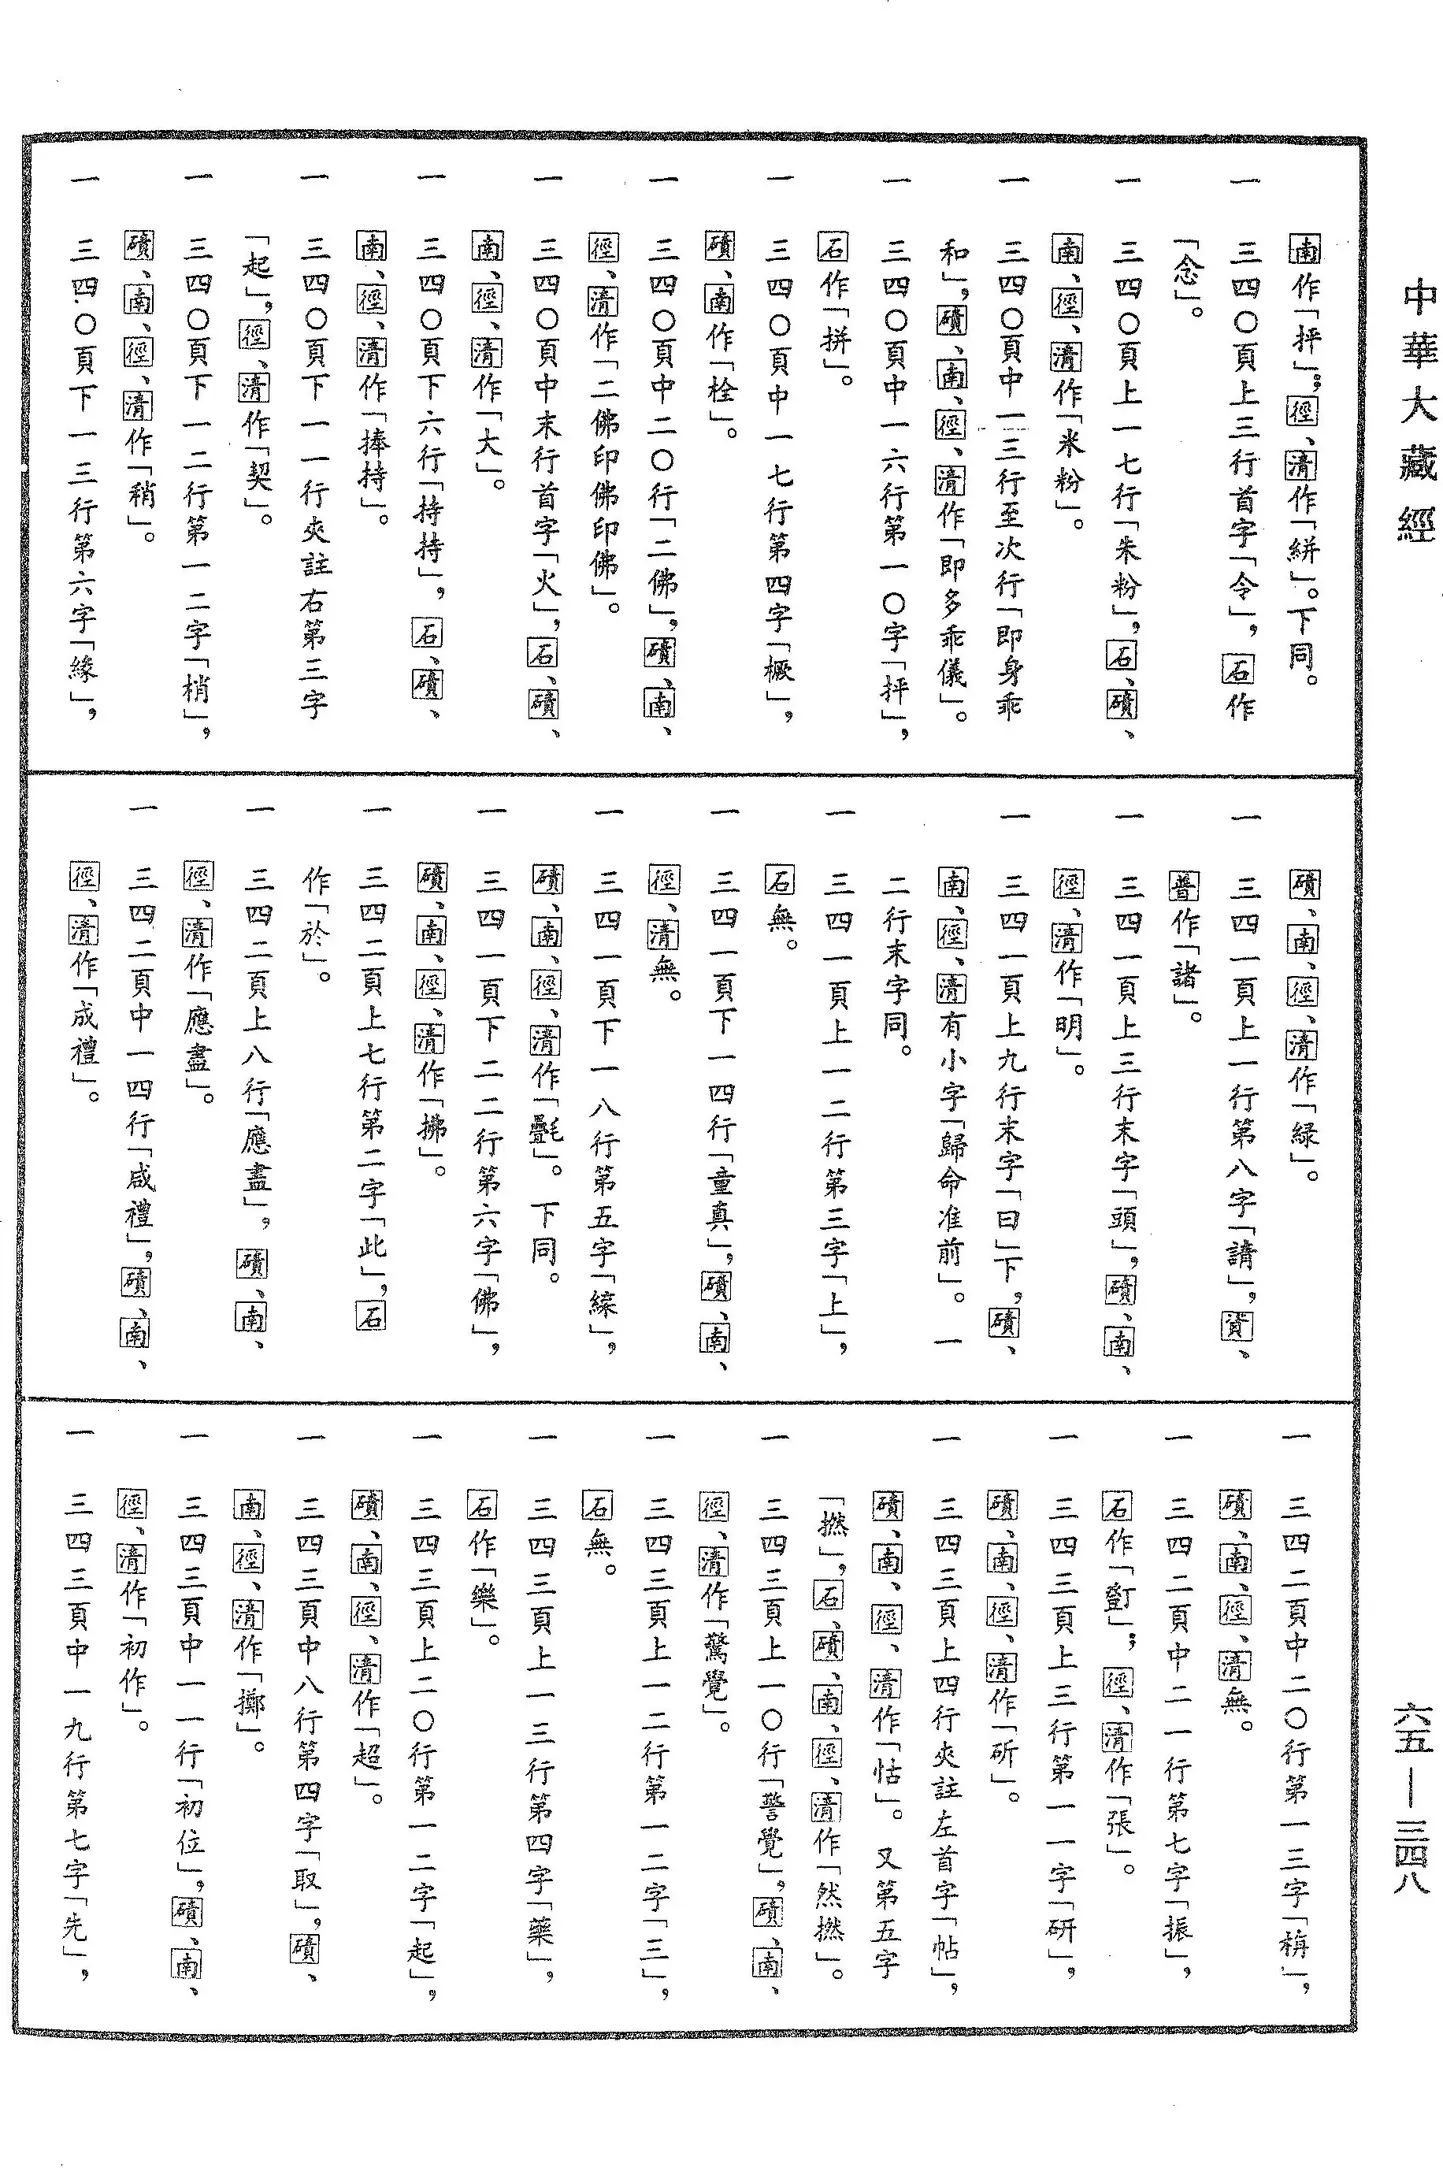 中華大藏經
南作「抨」；徑、清作「絣」。下同。
一　三四〇頁上三行首字「令」，石作
「念」。
一　三四〇頁上一七行「朱粉」，石、磧、
南、徑、清作「米粉」。
一　三四〇頁中一三行至次行「即身乖
和」，磧、南、徑、清作「即多乖儀」。
一　三四〇頁中一六行第一〇字「抨」，
石作「拼」。
一　三四〇頁中一七行第四字「橛」，
磧、南作「栓」。
一　三四〇頁中二〇行「二佛」，磧、南、
徑、清作「二佛印佛印佛」。
一　三四〇頁中末行首字「火」，石、磧、
南、徑、清作「大」。
一　三四〇頁下六行「持持」，石、磧、
南、徑、清作「捧持」。
一　三四〇頁下一一行夾註右第三字
「起」，徑、清作「契」。
一　三四〇頁下一二行第一二字「梢」，
磧、南、徑、清作「稍」。
一　三四〇頁下一三行第六字「緣」，
磧、南、徑、清作「綠」。
一　三四一頁上一行第八字「請」，資、
普作「諸」。
一　三四一頁上三行末字「頭」，磧、南、
徑、清作「明」。
一　三四一頁上九行末字「曰」下，磧、
南、徑、清有小字「歸命准前」。一
二行末字同。
一　三四一頁上一二行第三字「上」，
石無。
一　三四一頁下一四行「童真」，磧、南、
徑、清無。
一　三四一頁下一八行第五字「緤」，
磧、南、徑、清作「氎」。下同。
一　三四一頁下二二行第六字「佛」，
磧、南、徑、清作「拂」。
一　三四二頁上七行第二字「此」，石
作「於」。
一　三四二頁上八行「應盡」，磧、南、
徑、清作「應盡」。
一　三四二頁中一四行「咸禮」，磧、南、
徑、清作「成禮」。
一　三四二頁中二〇行第一三字「栴」，
磧、南、徑、清無。
一　三四二頁中二一行第七字「振」，
石作「㲪」；徑、清作「張」。
一　三四三頁上三行第一一字「研」，
磧、南、徑、清作「斫」。
一　三四三頁上四行夾註左首字「帖」，
磧、南、徑、清作「怙」。又第五字
「撚」，石、磧、南、徑、清作「然撚」。
一　三四三頁上一〇行「警覺」，磧、南、
徑、清作「驚覺」。
一　三四三頁上一二行第一二字「三」，
石無。
一　三四三頁上一三行第四字「藥」，
石作「樂」。
一　三四三頁上二〇行第一二字「起」，
磧、南、徑、清作「超」。
一　三四三頁中八行第四字「取」，磧、
南、徑、清作「擲」。
一　三四三頁中一一行「初位」，磧、南、
徑、清作「初作」。
一　三四三頁中一九行第七字「先」，
六五—三四八